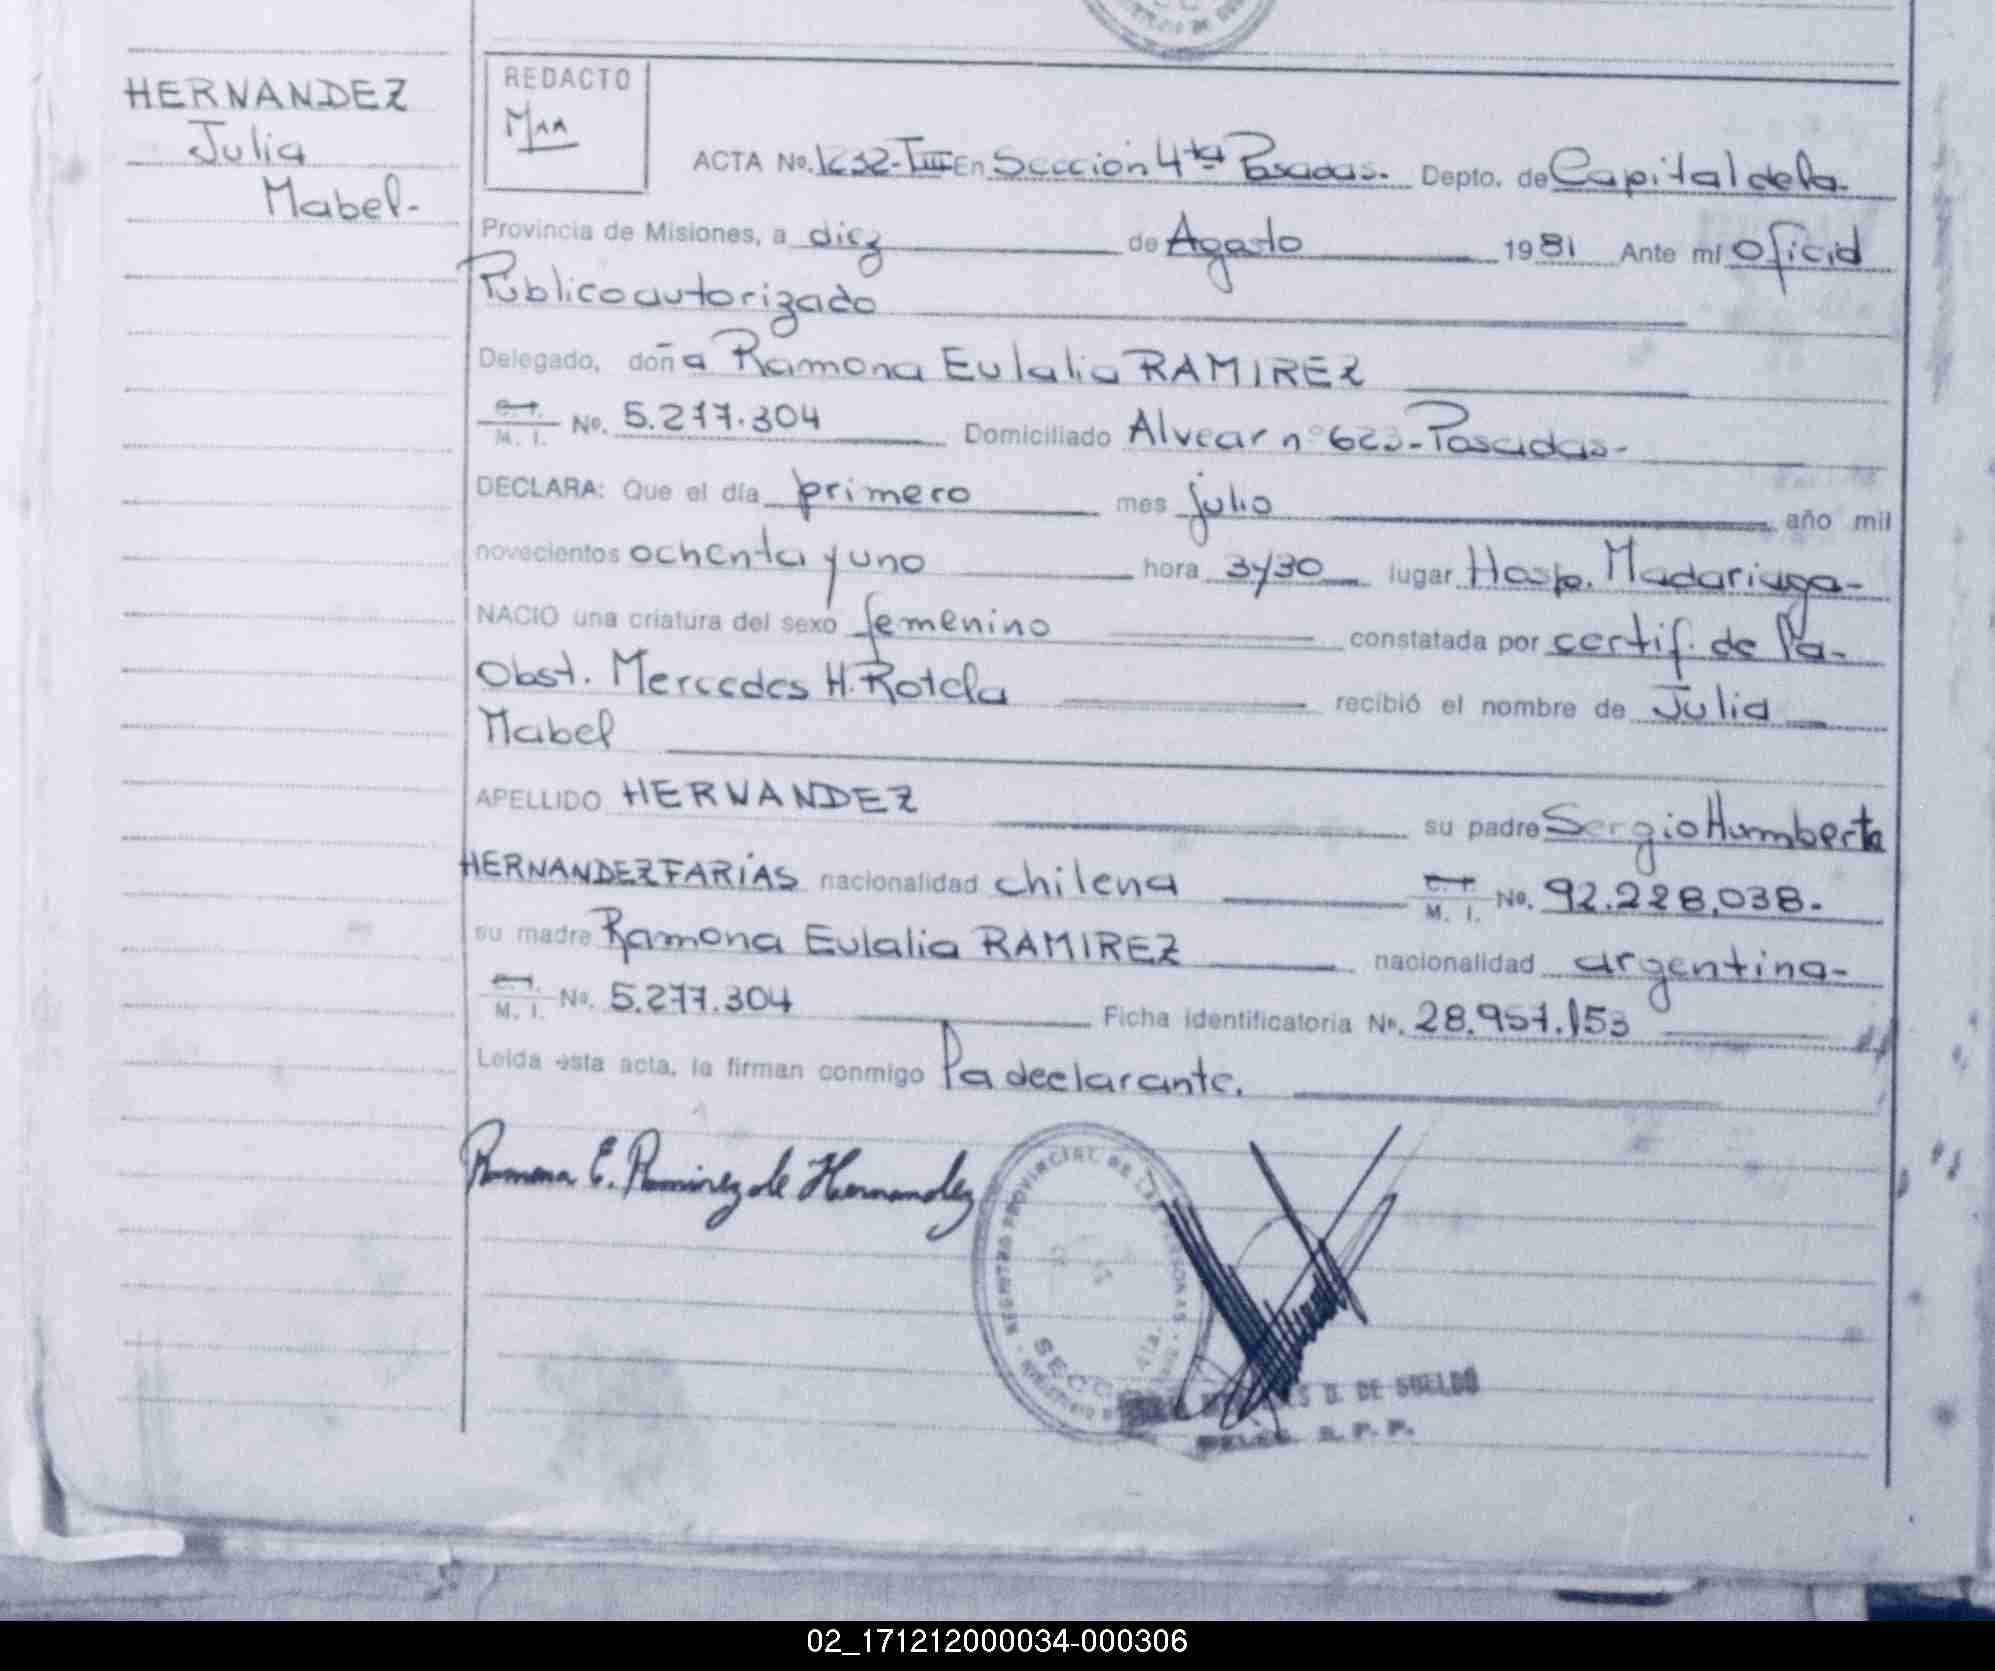 HERNANDEZ
Julia
Mabel-
REDACTO
ACTA No. 1632-TIII En Sección 4ta Posadas. Depto. de Capital de la
Provincia de Misiones, a diez de Agosto 1981 Ante mí Oficial
Publico autorizado
Delegado, doña Ramona Eulalia RAMIREZ
C.I. M. I. No. 5.277.304 Domiciliado Alvear nº 623-Posadas-
DECLARA: Que el día primero mes julio año mil
novecientos ochenta y uno hora 3y30 lugar Hosp. Madariaga-
NACIO una criatura del sexo femenino constatada por certif. de la-
Obst. Mercedes H. Rotela recibió el nombre de Julia
Mabel
APELLIDO HERNANDEZ su padre Sergio Humberto
HERNANDEZ FARÍAS nacionalidad chilena C.I. M. I. No. 92.228.038.
su madre Ramona Eulalia RAMIREZ nacionalidad argentina-
C.I. M. I. No. 5.277.304 Ficha identificatoria No. 28.957.153
Leida esta acta, la firman conmigo la declarante.
Ramona E. Ramirez de Hernandez
REGISTRO PROVINCIAL DE LAS PERSONAS
SECC 4ta.
D. DE SUELDO
R. P. P.
02_171212000034-000306